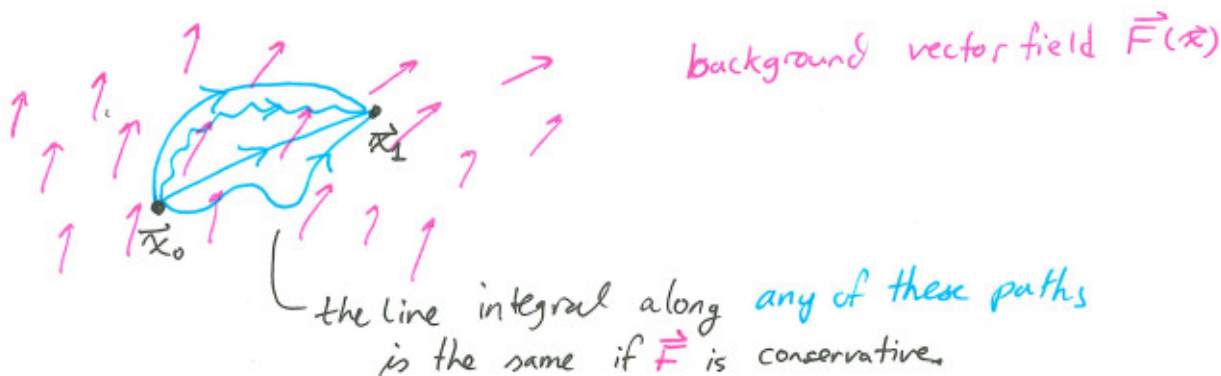 background vector field F⃗(x⃗)
x⃗₁
x⃗₀
the line integral along any of these paths
is the same if F⃗ is conservative.